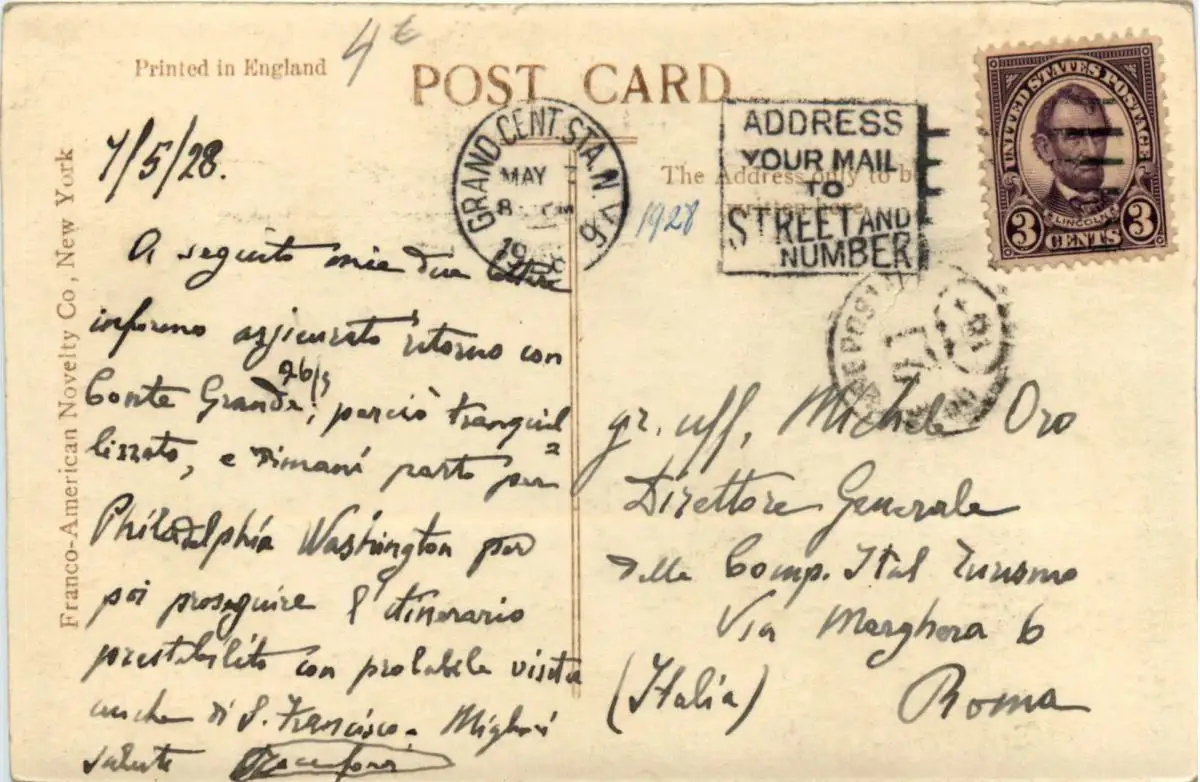 Printed in England
4€
POST CARD
GRAND CENT. STA. N.Y.
MAY
8
19 8
6
1928
ADDRESS
YOUR MAIL
TO
STREET AND
NUMBER
The Address only to be
written here
UNITED STATES POSTAGE
LINCOLN
3 CENTS 3
Franco-American Novelty Co, New York
7/5/28.
A seguito mie due lettere
informo assicurato ritorno con
26/5
Conte Grande, perciò tranquil=
lizzato, e dimani parto per
Philadelphia Washington per
poi proseguire l'itinerario
prestabilito con probabile visita
anche di S. Francisco. Migliori
saluti
gr. uff. Michele Oro
Direttore Generale
della Comp. Ital Turismo
Via Marghera 6
(Italia) Roma